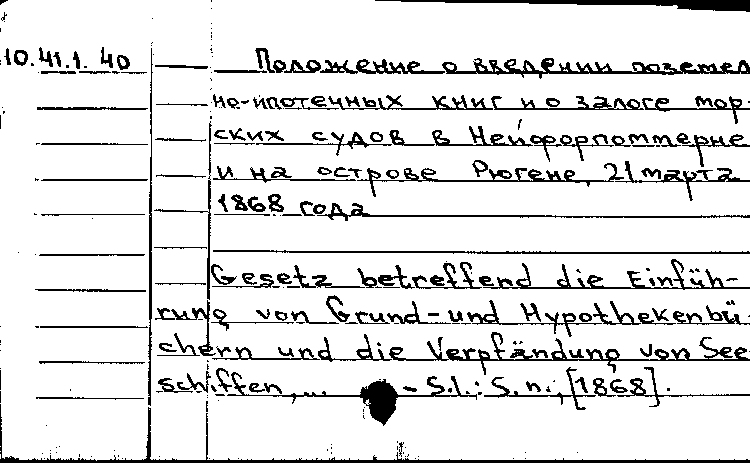 10.41.1.40 Положение о введении поземел
но-ипотечных книг и о залоге мор-
ских судов в Нейфорпоммерне
и на острове Рюгене, 21 марта
1868 года
Gesetz betreffend die Einfüh-
rung von Grund-und Hypothekenbü-
chern und die Verpfändung von See
schiffen,... - S.l.: S.n., [1868].